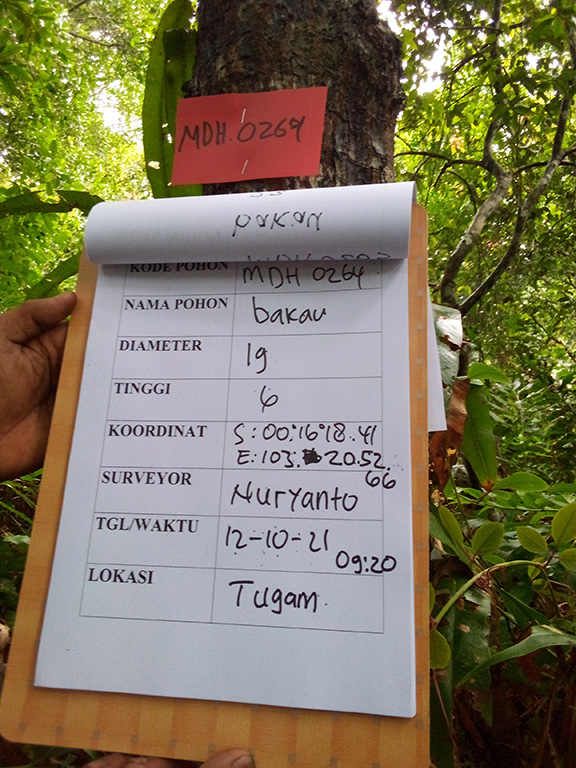 MDH.0269
pakan
KODE POHON MDH 0269
NAMA POHON bakau
DIAMETER 19
TINGGI 6
KOORDINAT S : 00°16'18.41
E : 103. 20.52.
66
SURVEYOR Nuryanto
TGL/WAKTU 12-10-21
09:20
LOKASI Tugam.